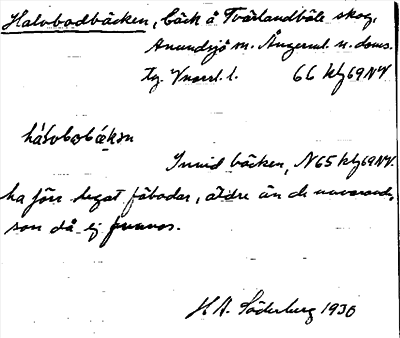 Halvbodbäcken, bäck å Tvärlandböle skog,
Anundsjö sn. Ångerml. n. doms.
tg. Vnorrl. l. 66 kly 69 NV
hálvbobɛkɘn
Invid bäcken, N 65 kly 69 NV.
ha förr legat fäbodar, äldre än de nuvarande,
som då ej funnos.
H A. Söderberg 1930